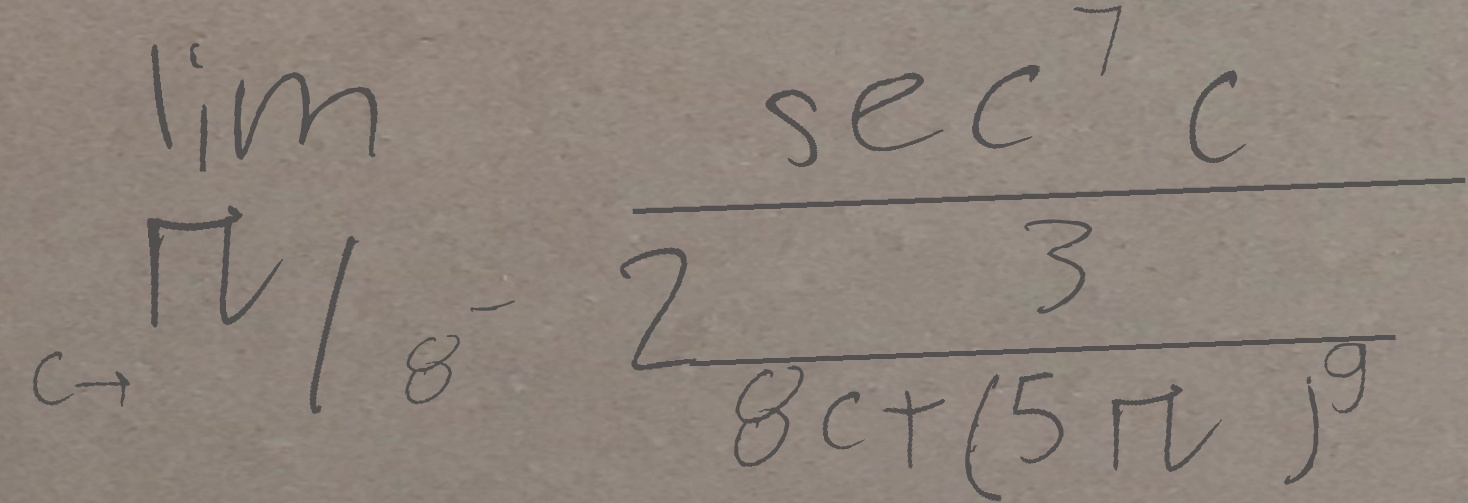 \lim_{c \to \pi/8^-} \frac{\sec^7 c}{2 \frac{3}{8c + (5\pi)^9}}